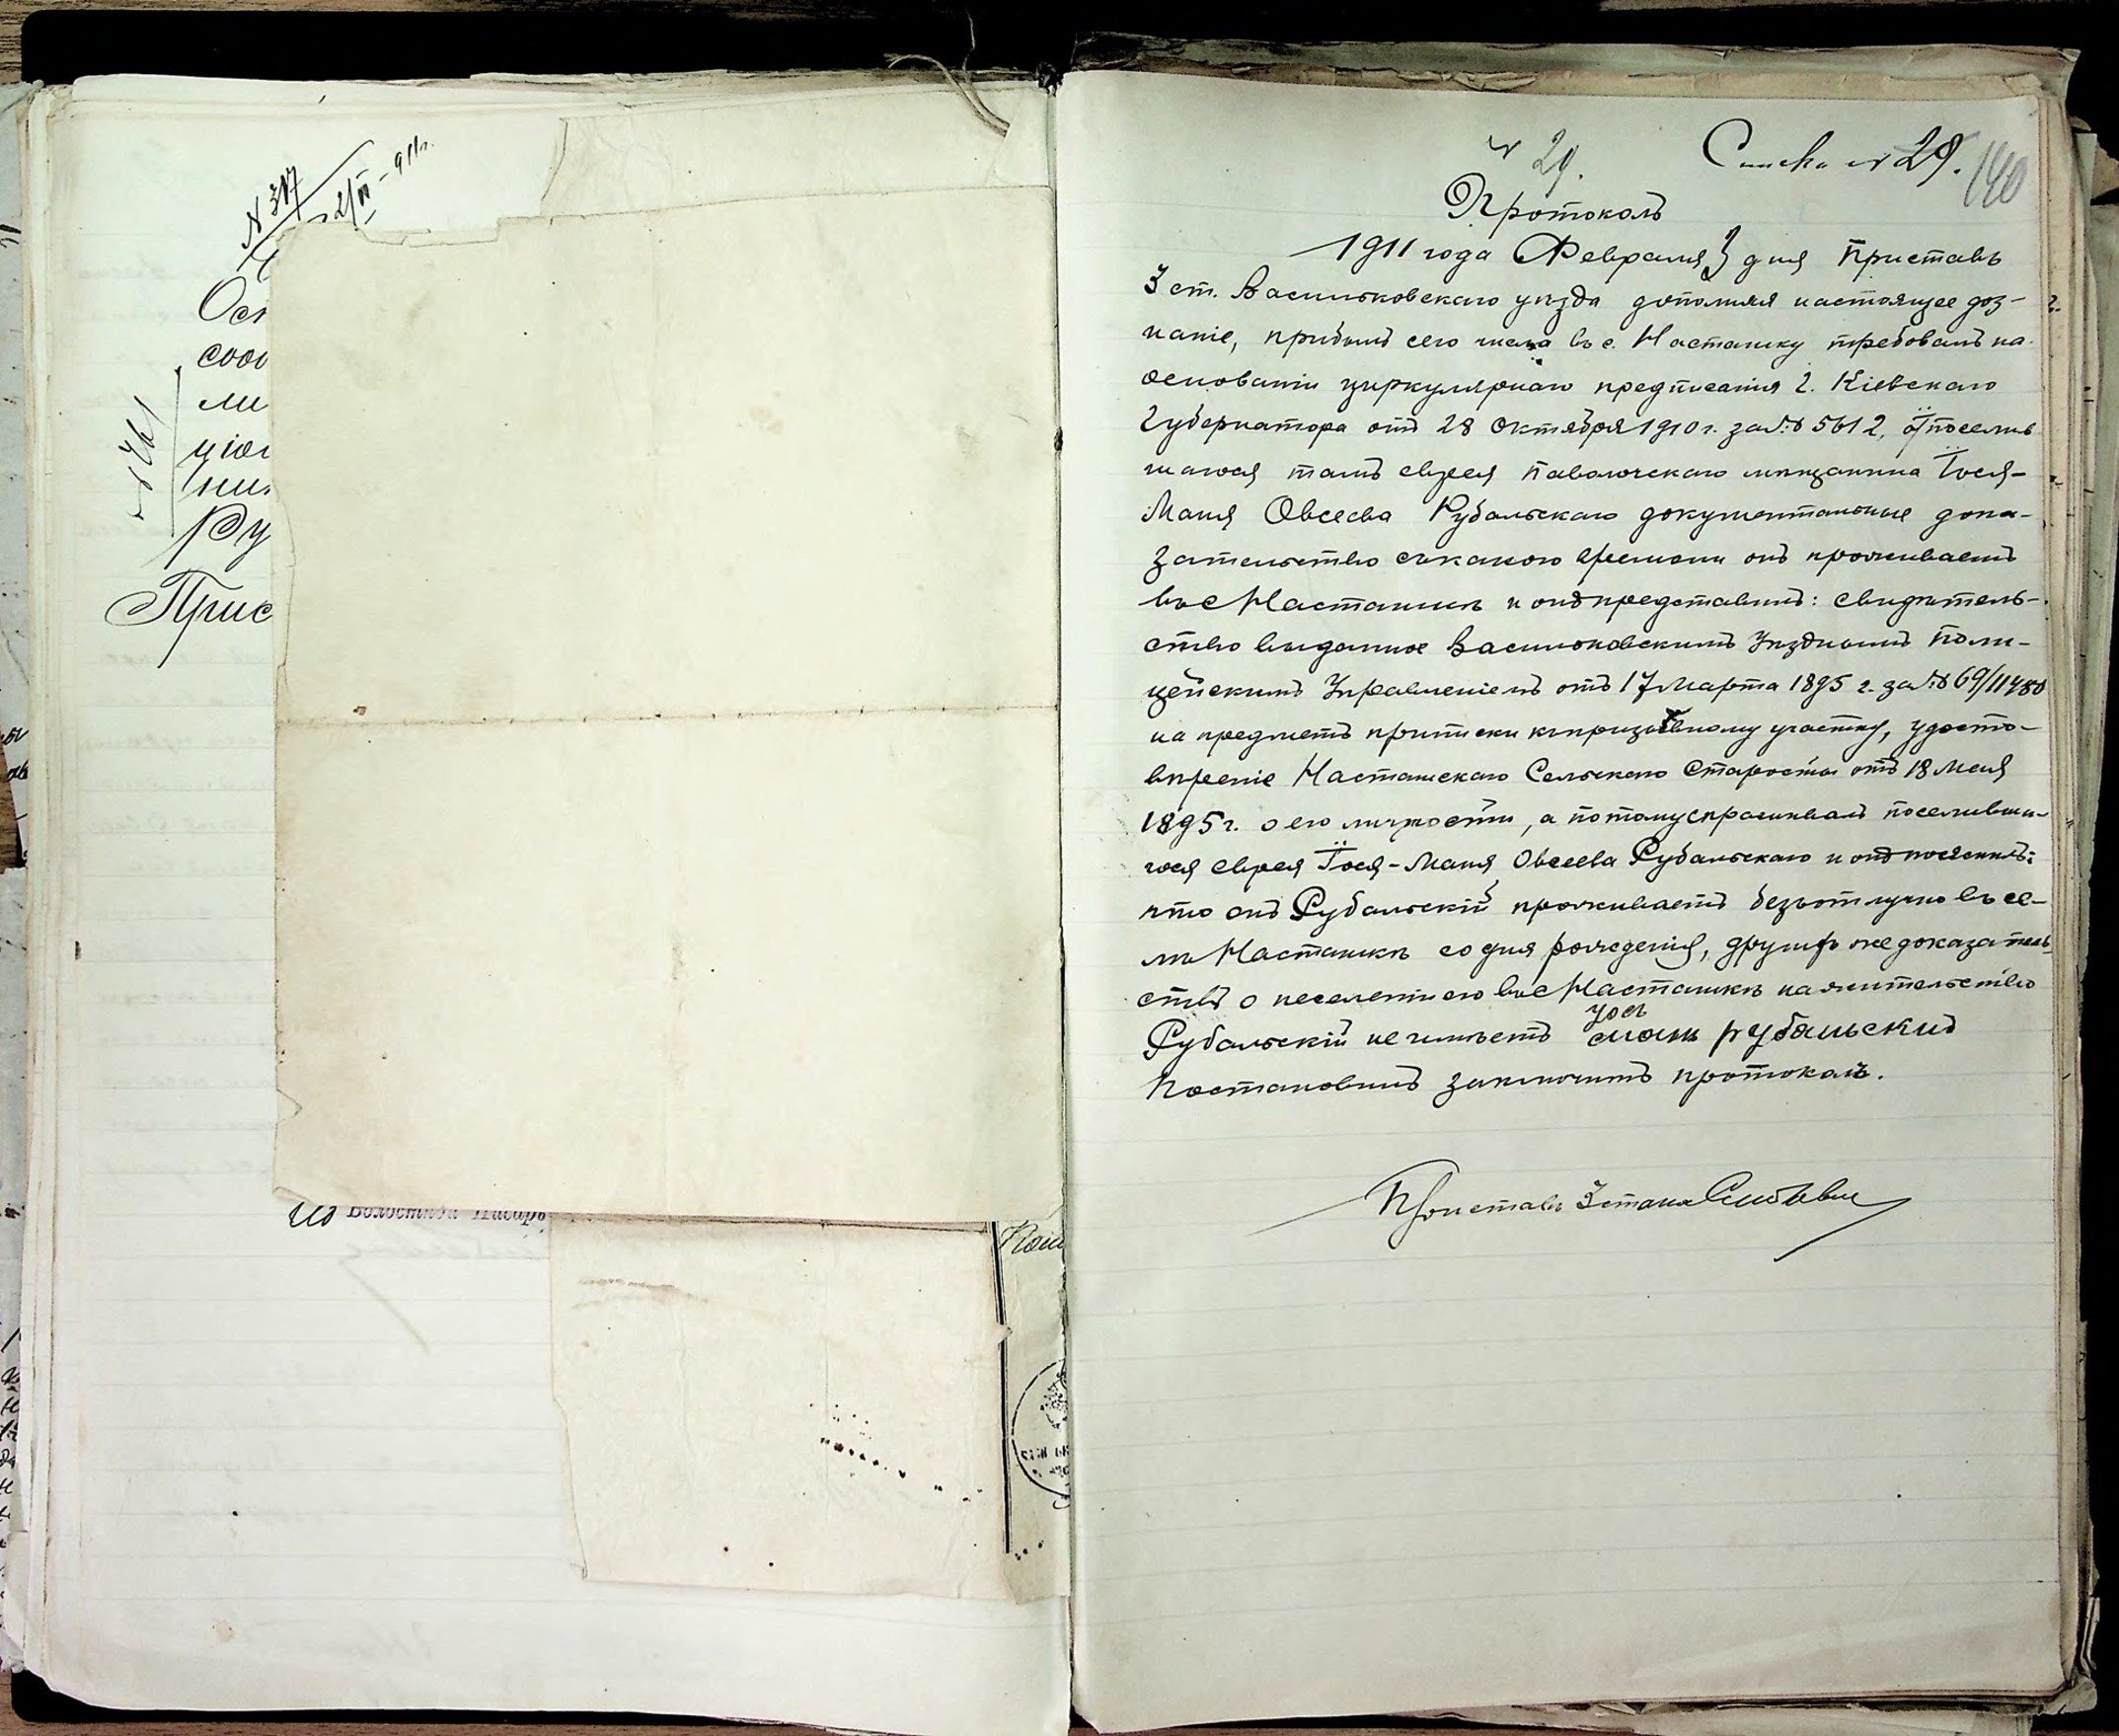 N 317
2/II - 911 г.
Ост
сооб
ли
ціон
ник
Ру
Прис
Волостной Писарь
№ 29.
Списка № 29.
140
Протоколъ
1911 года Февраля 3 дня Приставъ
3 ст. Васильковскаго уѣзда дополняя настоящее доз-
наніе, прибылъ сего числа въ с. Насташку требовалъ на
основаніи циркулярнаго предписанія г. Кіевскаго
Губернатора отъ 28 Октября 1910 г. за № 5612, отъ поселив
шагося тамъ еврея Паволочскаго мѣщанина Іося-
Маня Овсеева Рубальскаго документальные дока-
зательство съ какого времени онъ проживаетъ
въ с Насташкѣ и онъ представилъ: свидѣтель-
ство выданное Васильковскимъ Уѣзднымъ Поли-
цейскимъ Управленіемъ отъ 17 Марта 1895 г. за № 69/11480
на предметъ приписки къ призывному участку, удосто-
вѣреніе Насташскаго Сельскаго Старосты отъ 18 Мая
1895 г. о его личности, а потому спрашивалъ поселивша-
гося еврея Іося-Маня Овсеева Рубальскаго и онъ пояснилъ:
что онъ Рубальскій проживаетъ безъотлучно въ се-
лѣ Насташкѣ со дня рожденія, другихъ же доказатель
ствъ о поселеніи его въ с Насташкѣ на жительство
Рубальскій не имѣетъ
рубальский
Постановилъ заключить протоколъ.
Приставъ 3 стана